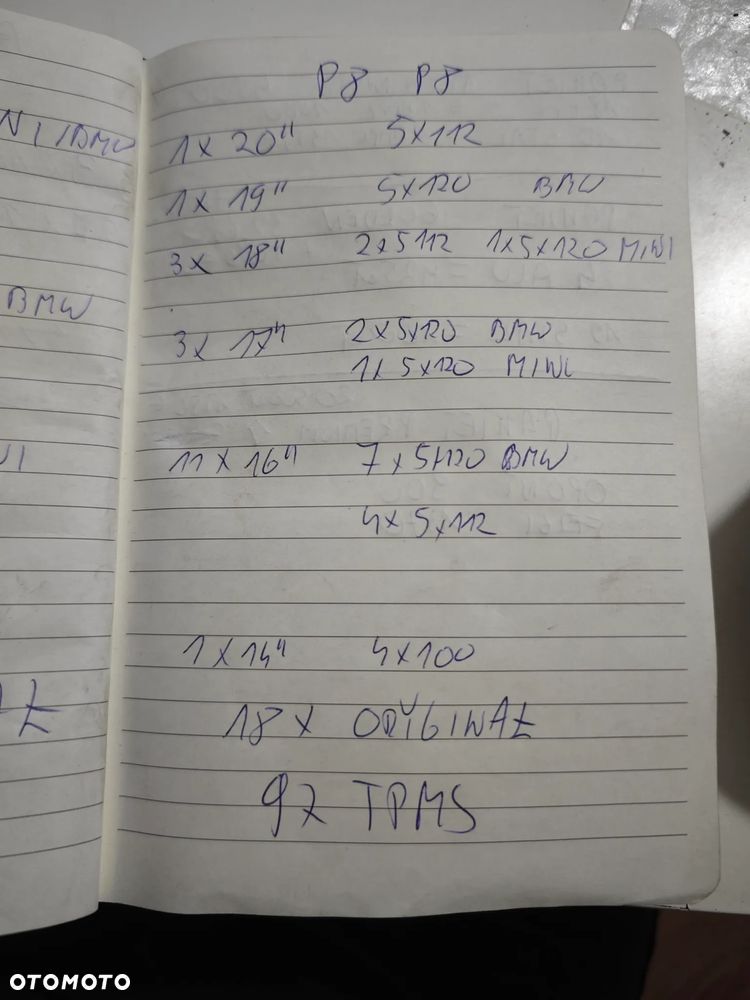 NI//BMW
BMW
P8 P8
1x 20" 5x112
1x 19" 5x120 BMW
3x 18" 2x5112 1x5x120 MINI
3x 17" 2x5x120 BMW
1x 5x120 MINI
11x16" 7x5x120 BMW
4x5x112
1x14" 4x100
18x ORYGINAŁ
97 TPMS
OTOMOTO